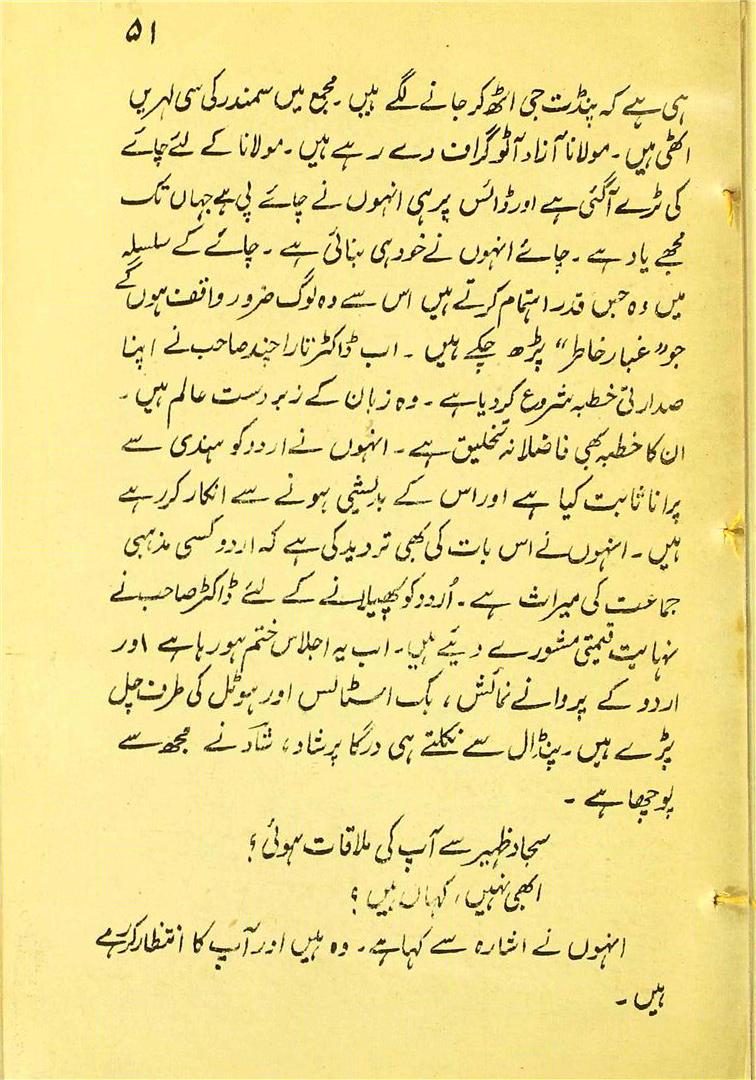 ۵۱
ہی ہے کہ پنڈت جی اٹھ کر جانے لگے ہیں ۔ مجمع میں سمندر کی سی لہریں
اٹھی ہیں ۔ مولانا آزاد آٹوگراف دے رہے ہیں ۔ مولانا کے لئے چائے
کی ٹرے آگئی ہے اور ڈائس پر ہی انہوں نے چائے پی ہے جہاں تک
مجھے یاد ہے ۔ چائے انہوں نے خود ہی بنائی ہے ۔ چائے کے سلسلہ
میں وہ جس قدر اہتمام کرتے ہیں اس سے وہ لوگ ضرور واقف ہوں گے
جو ”غبار خاطر“ پڑھ چکے ہیں ۔ اب ڈاکٹر تارا چند صاحب نے اپنا
صدارتی خطبہ شروع کر دیا ہے ۔ وہ زبان کے زبردست عالم ہیں ۔
ان کا خطبہ بھی فاضلانہ تخلیق ہے ۔ انہوں نے اردو کو ہندی سے
پرانا ثابت کیا ہے اور اس کے بدیشی ہونے سے انکار کر رہے
ہیں ۔ انہوں نے اس بات کی بھی تردید کی ہے کہ اردو کسی مذہبی
جماعت کی میراث ہے ۔ اُردو کو پھیلانے کے لئے ڈاکٹر صاحب نے
نہایت قیمتی مشورے دیئے ہیں ۔ اب یہ اجلاس ختم ہو رہا ہے اور
اردو کے پروانے نمائش ، بک اسٹالس اور ہوٹل کی طرف چل
پڑے ہیں ۔ پنڈال سے نکلتے ہی درگا پرشاد ، شاد نے مجھ سے
پوچھا ہے ۔
سجاد ظہیر سے آپ کی ملاقات ہوئی ؟
ابھی نہیں ، کہاں ہیں ؟
انہوں نے اشارہ سے کہا ہے ۔ وہ ہیں اور آپ کا انتظار کر رہے
ہیں ۔